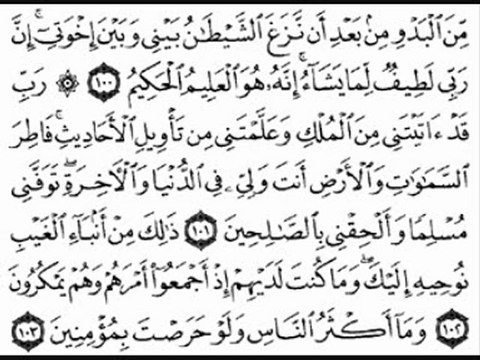 مِّنَ ٱلْبَدْوِ مِنۢ بَعْدِ أَن نَّزَغَ ٱلشَّيْطَٰنُ بَيْنِى وَبَيْنَ إِخْوَتِىٓ ۚ إِنَّ
رَبِّى لَطِيفٌ لِّمَا يَشَآءُ ۚ إِنَّهُۥ هُوَ ٱلْعَلِيمُ ٱلْحَكِيمُ ١٠٠ ۞ رَبِّ
قَدْ ءَاتَيْتَنِى مِنَ ٱلْمُلْكِ وَعَلَّمْتَنِى مِن تَأْوِيلِ ٱلْأَحَادِيثِ ۚ فَاطِرَ
ٱلسَّمَٰوَٰتِ وَٱلْأَرْضِ أَنتَ وَلِىِّۦ فِى ٱلدُّنْيَا وَٱلْءَاخِرَةِ ۖ تَوَفَّنِى
مُسْلِمًا وَأَلْحِقْنِى بِٱلصَّٰلِحِينَ ١٠١ ذَٰلِكَ مِنْ أَنۢبَآءِ ٱلْغَيْبِ
نُوحِيهِ إِلَيْكَ ۖ وَمَا كُنتَ لَدَيْهِمْ إِذْ أَجْمَعُوٓا۟ أَمْرَهُمْ وَهُمْ يَمْكُرُونَ
١٠٢ وَمَآ أَكْثَرُ ٱلنَّاسِ وَلَوْ حَرَصْتَ بِمُؤْمِنِينَ ١٠٣